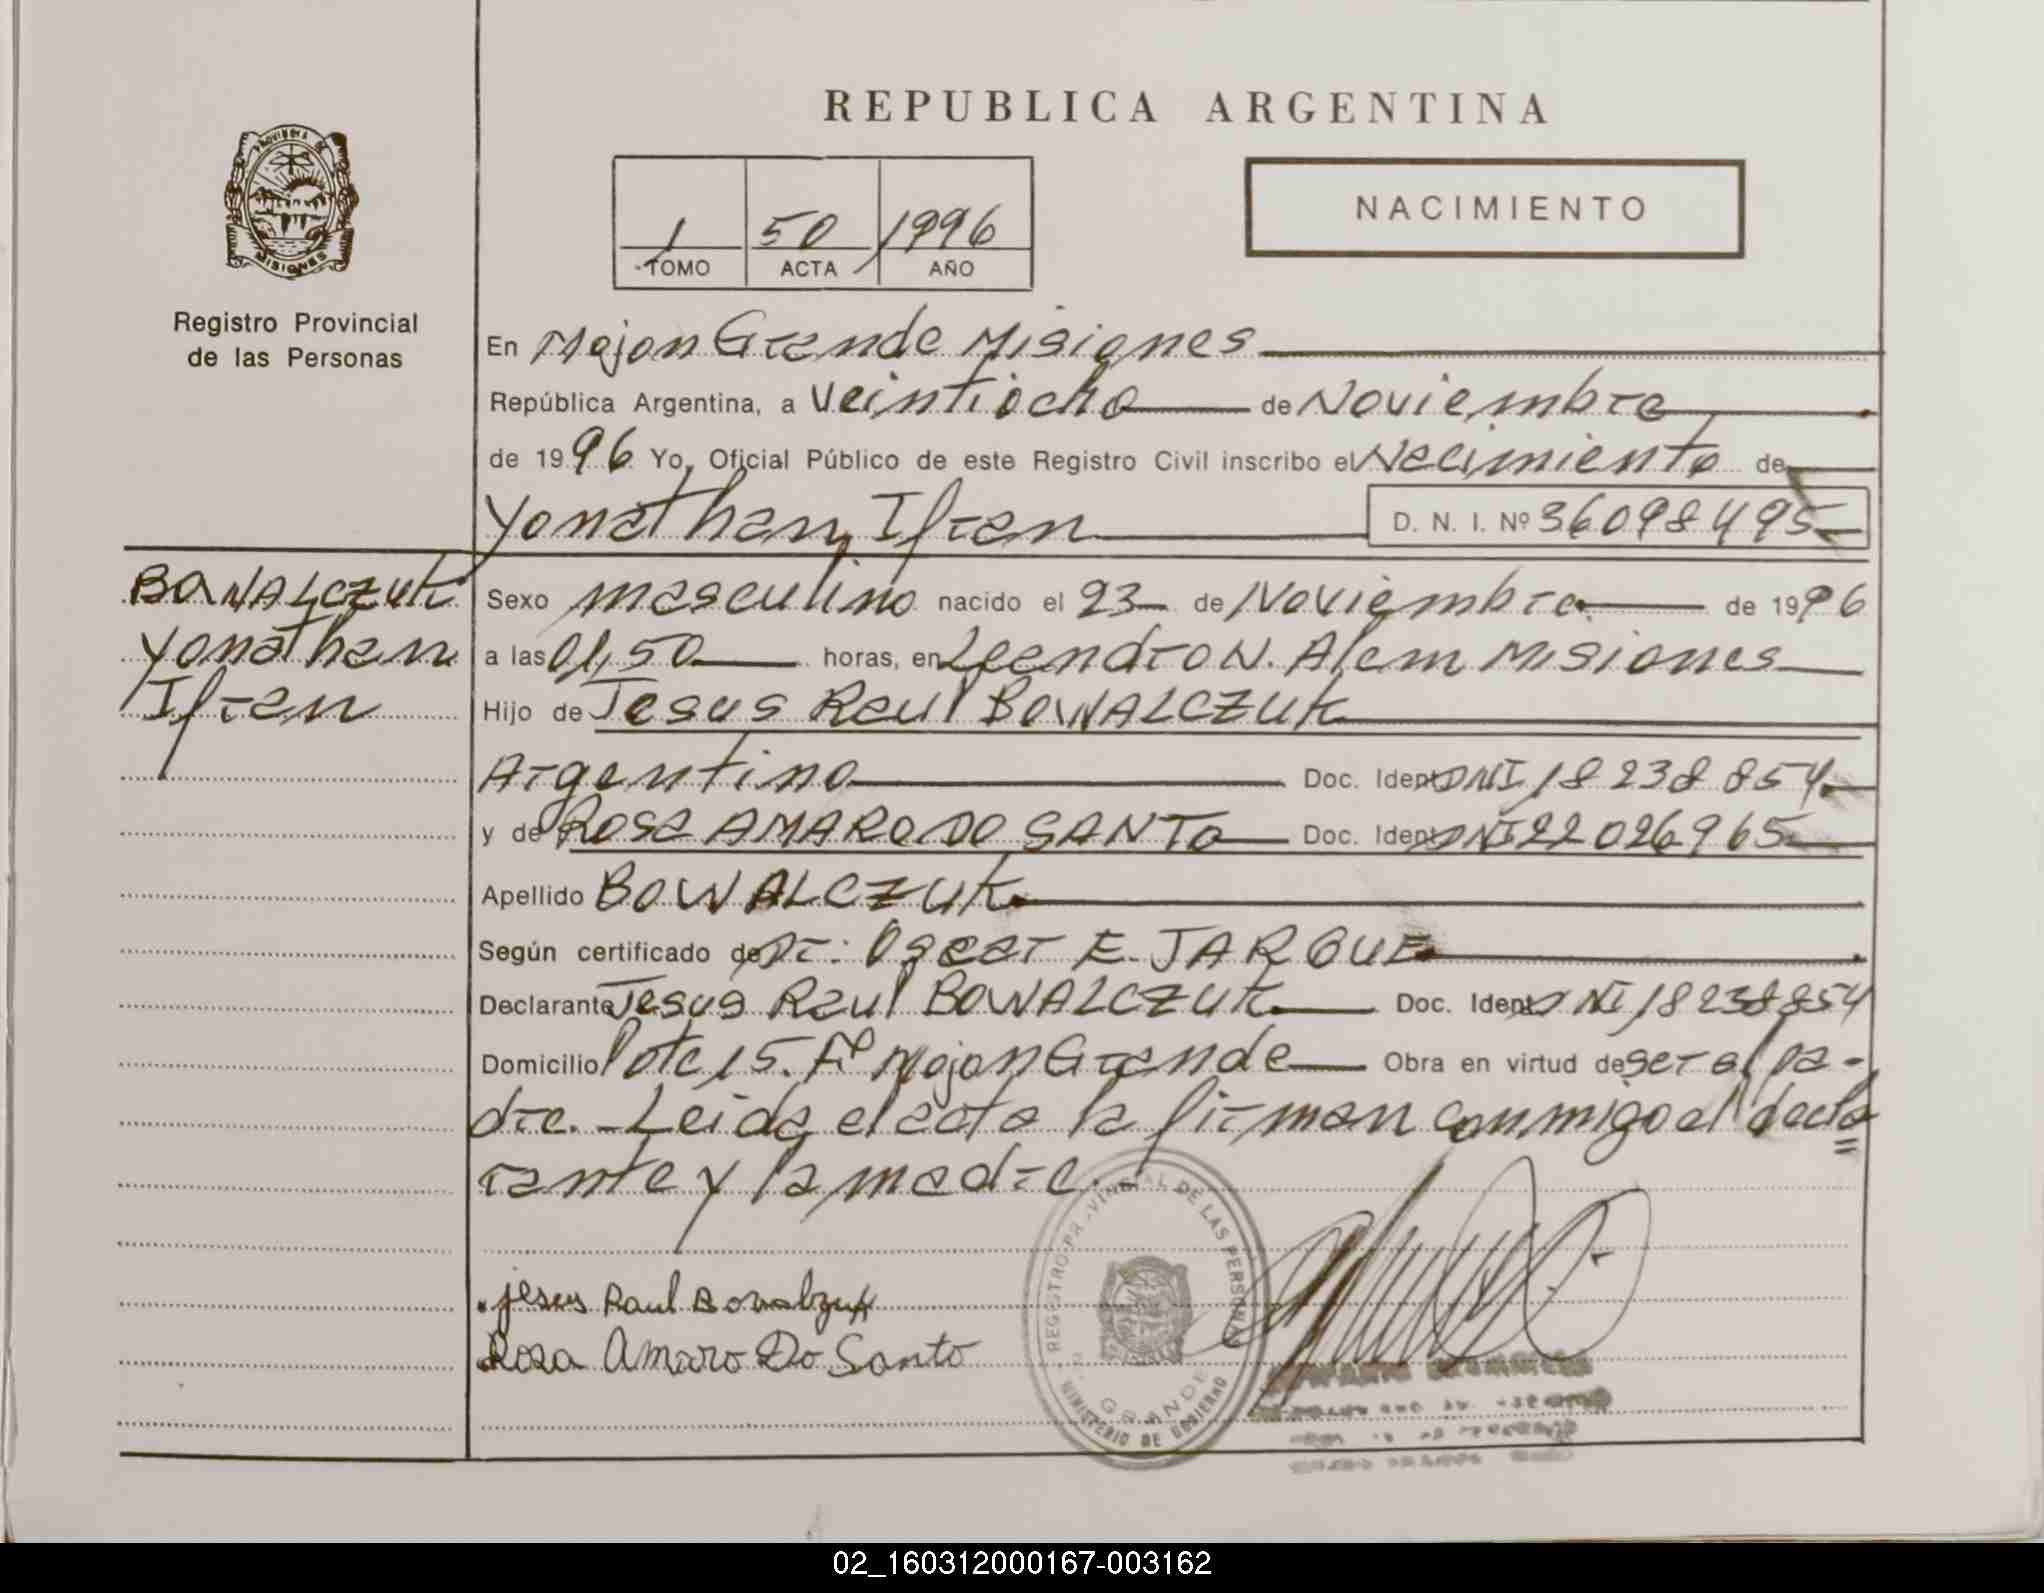 REPUBLICA ARGENTINA
PROVINCIA DE
MISIONES
Registro Provincial
de las Personas
1 50 1996
TOMO ACTA AÑO
NACIMIENTO
En Mojon Grande Misiones
República Argentina, a Veintiocho de Noviembre
de 1996 Yo, Oficial Público de este Registro Civil inscribo el Nacimiento de
Yonathan Ifran D. N. I. Nº 36098495
BOWALCZUK
Yonathan
Ifran
Sexo masculino nacido el 23 de Noviembre de 1996
a las 01,50 horas, en Leandro N. Alem Misiones
Hijo de Jesus Raul BOWALCZUK
Argentino Doc. Ident. DNI 18238854
y de Rosa AMARO DO SANTO Doc. Ident. DNI 22026965
Apellido BOWALCZUK
Según certificado de Dr: Oscar E. JARQUE
Declarante Jesus Raul BOWALCZUK Doc. Ident. DNI 18238854
Domicilio lote 15. Fl Mojon Grande Obra en virtud de ser el pa-
dre. - Leida el acta la firman conmigo el decla
rante y la madre.
jesus Raul Bowalczuk
Rosa Amaro Do Santo
REGISTRO PROVINCIAL DE LAS PERSONAS
GRANDE
MINISTERIO DE GOBIERNO
02_160312000167-003162